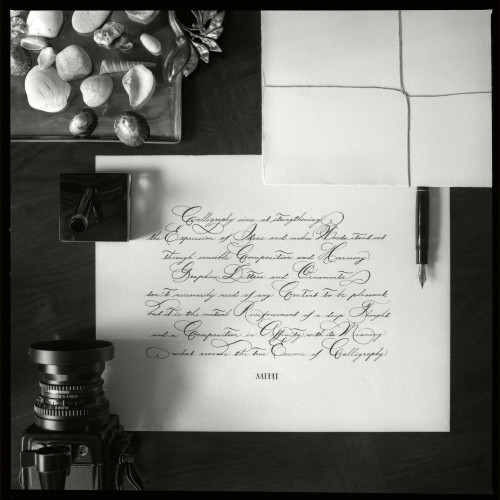 Calligraphy aims at strengthening
the Expression of Ideas and makes Words stand out
through sensible Composition and Harmony
Graphics, Letters and Ornaments
don't necessarily need of any Content to be pleasant
but it is the mutual Reinforcement of a deep Thought
and a Composition in Affinity with its Meaning
what reveals the true Essence of Calligraphy